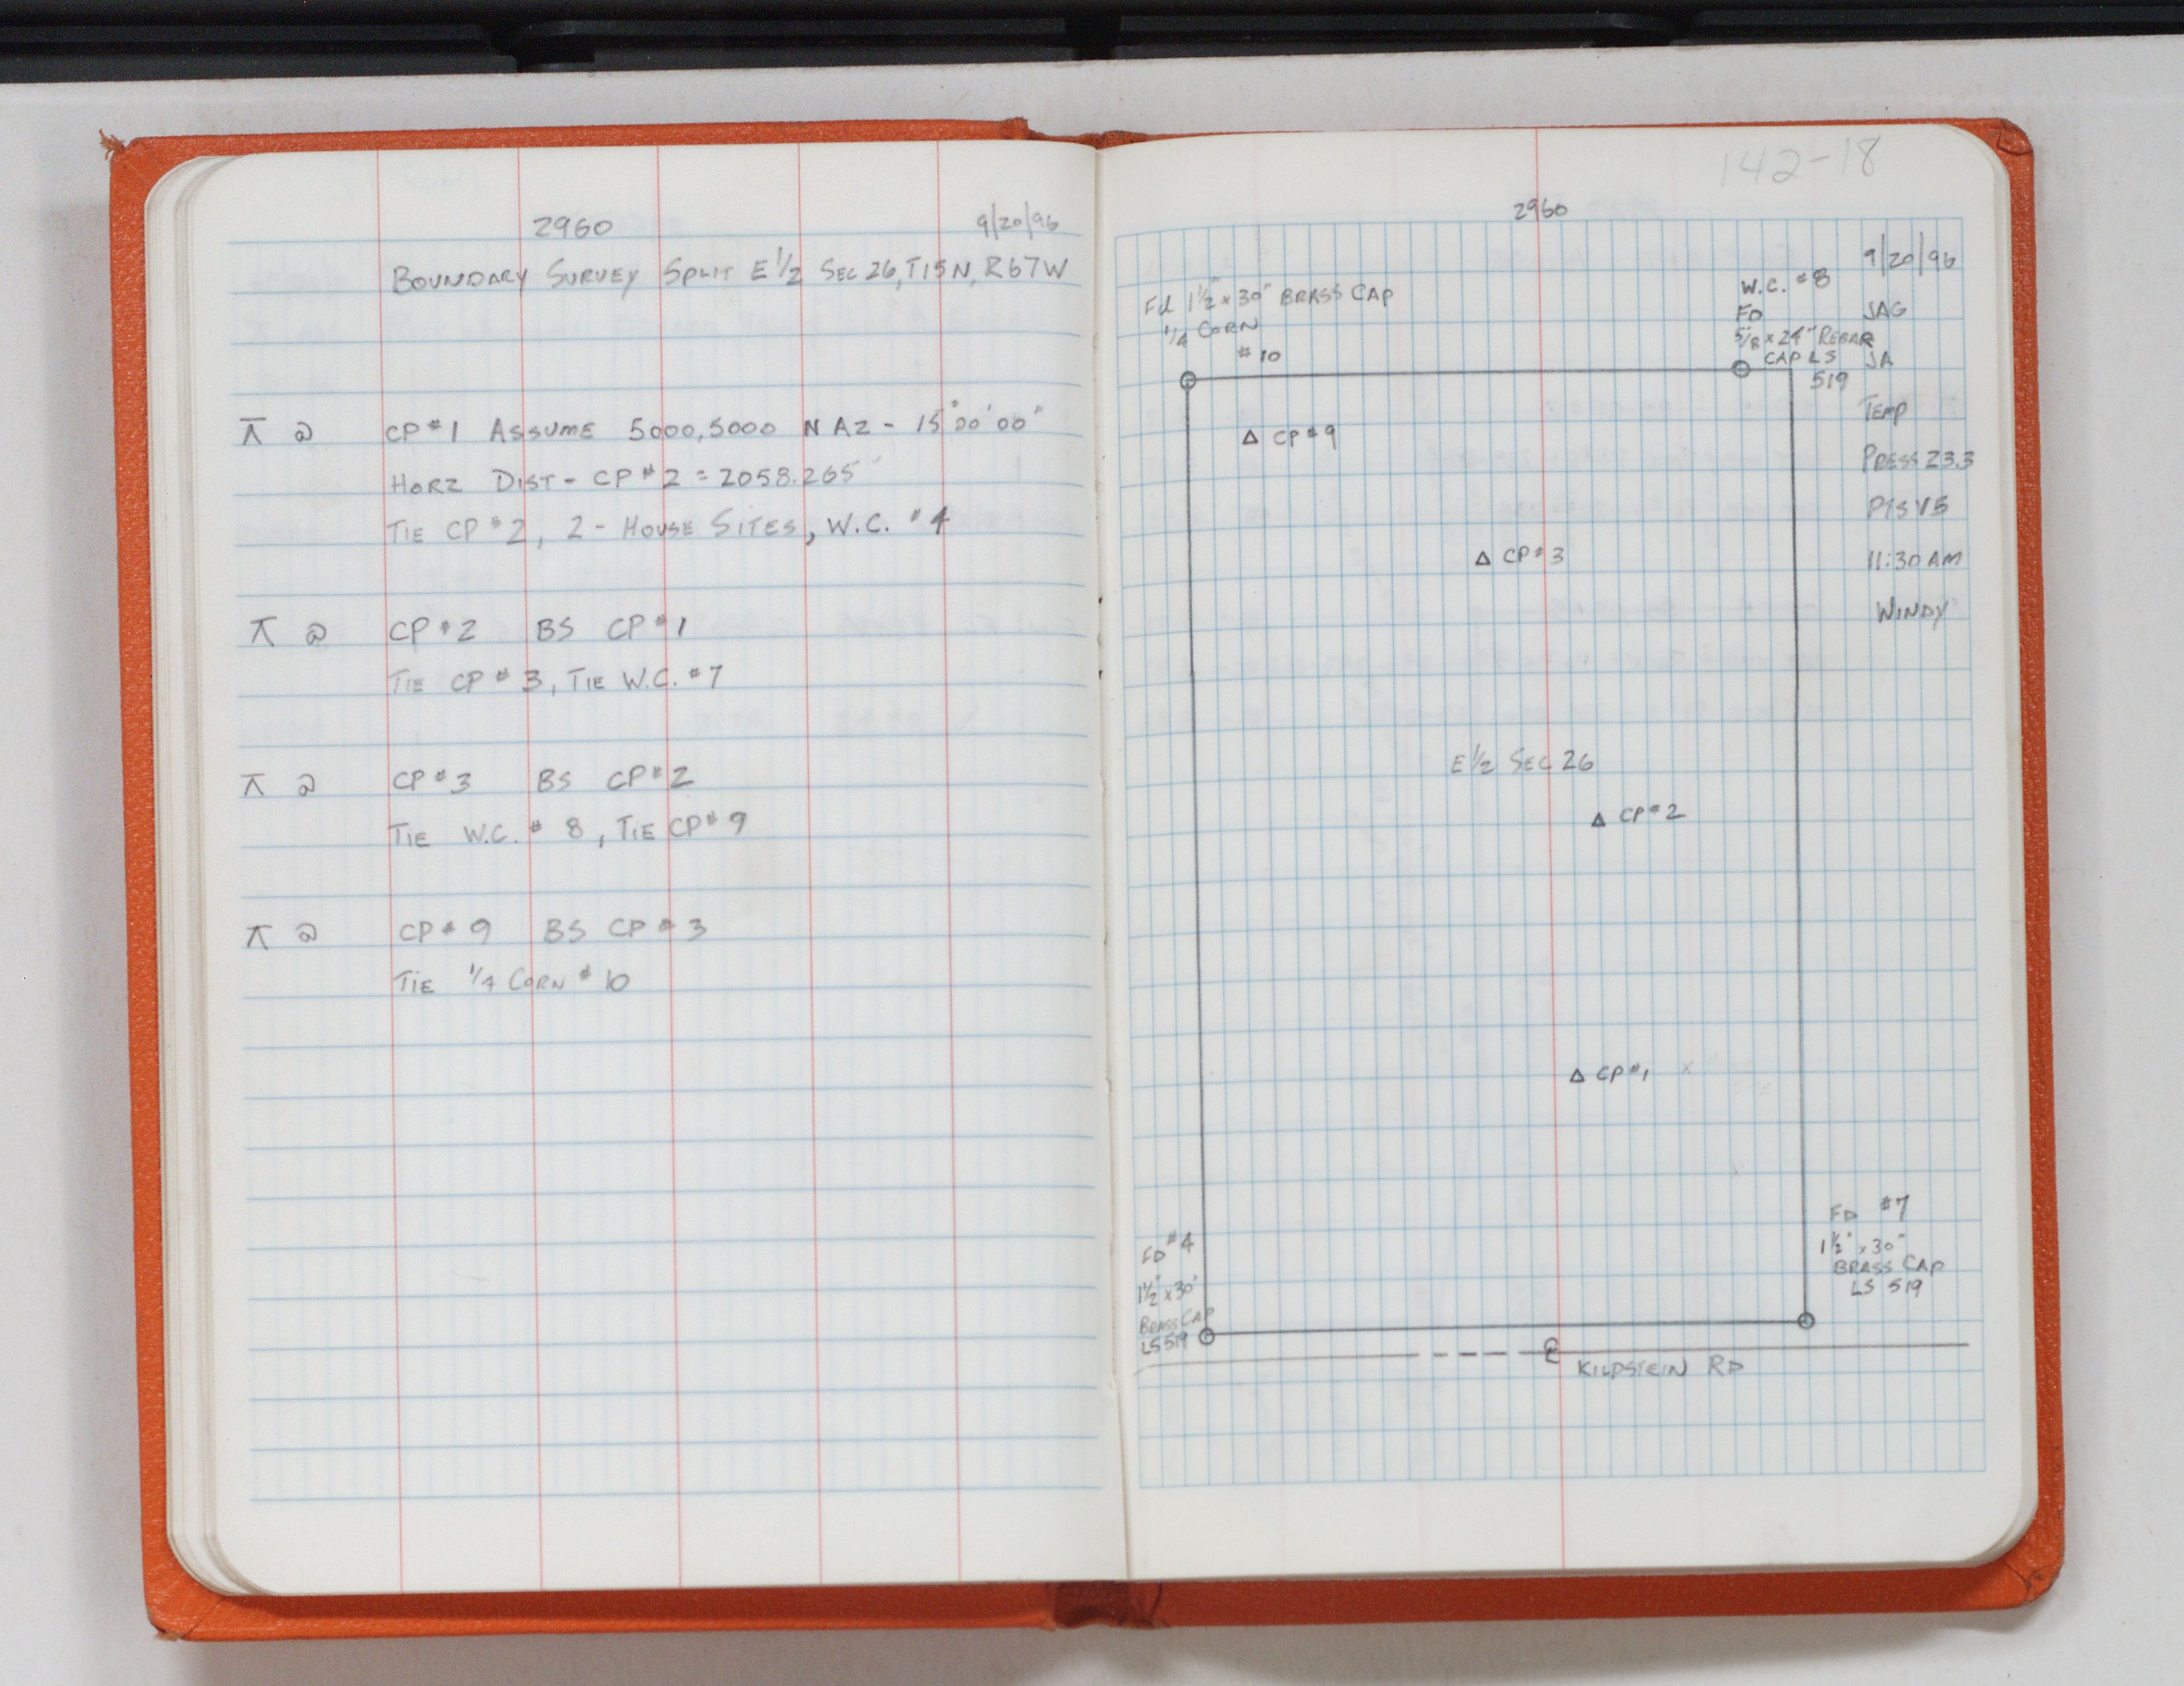 2960
9/20/96
BOUNDARY SURVEY SPLIT E 1/2 SEC 26, T15N, R67W
⊼ @ CP#1 ASSUME 5000,5000 N AZ - 15°00'00"
HORZ DIST - CP#2 = 2058.265'
TIE CP#2, 2-HOUSE SITES, W.C. #4
⊼ @ CP#2 BS CP#1
TIE CP#3, TIE W.C. #7
⊼ @ CP#3 BS CP#2
TIE W.C. #8, TIE CP#9
⊼ @ CP#9 BS CP#3
TIE 1/4 CORN #10
142-18
2960
9/20/96
JAG
JA
TEMP
PRESS 23.3
11:30 AM
WINDY
Fd 1 1/2" x 30" BRASS CAP
1/4 CORN
#10
W.C. #8
FD
5/8 x 24" REBAR
CAP LS
519
Δ CP#9
Δ CP#3
E 1/2 SEC 26
Δ CP#2
Δ CP#1
FD #4
1 1/2" x 30"
BRASS CAP
LS 519
FD #7
1 1/2" x 30"
BRASS CAP
LS 519
℄ KILPSTEIN RD